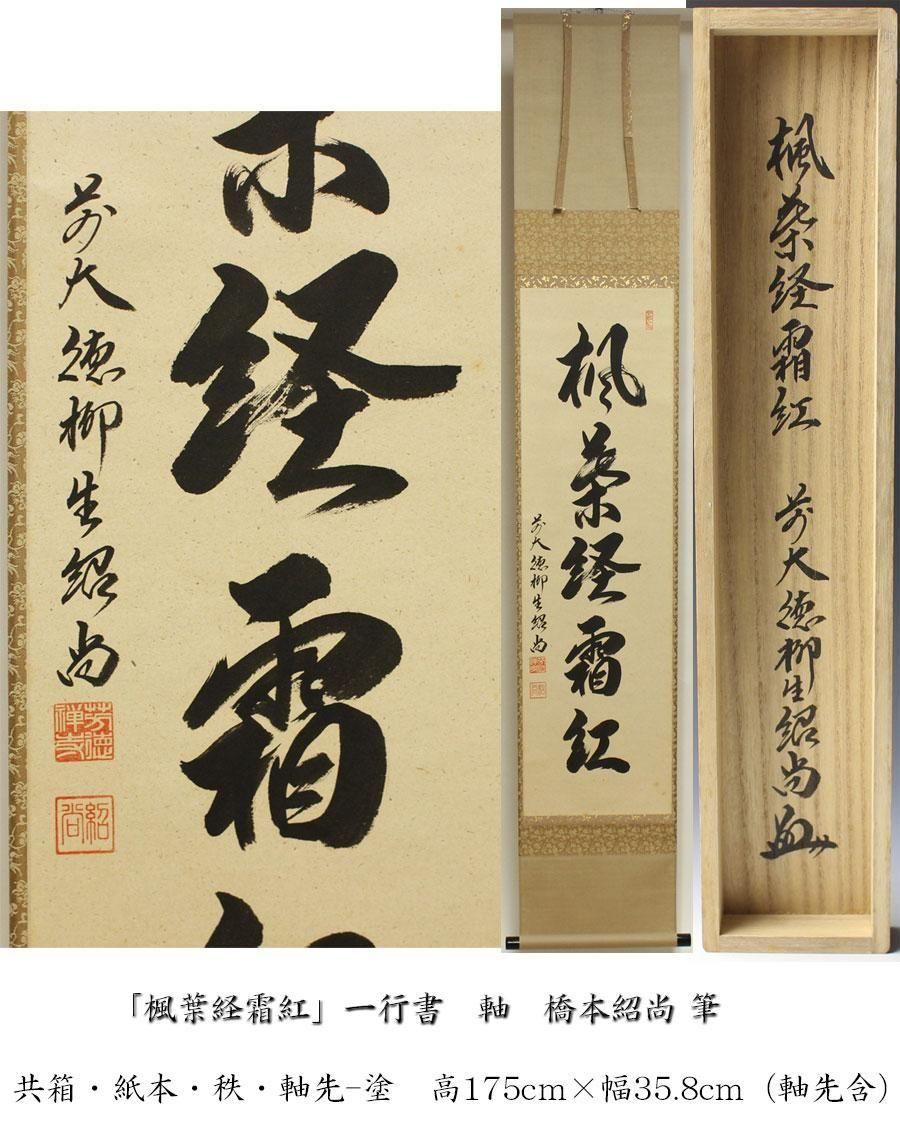 楓葉経霜紅
前大徳柳生紹尚
芳徳
禅寺
紹尚
楓葉経霜紅
前大徳柳生紹尚
楓葉経霜紅　前大徳柳生紹尚
「楓葉経霜紅」一行書　軸　橋本紹尚 筆
共箱・紙本・秩・軸先-塗　高175cm×幅35.8cm（軸先含）